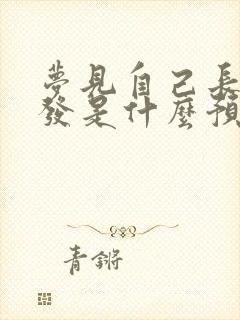 夢見自己長
發是什麼預
青鏘